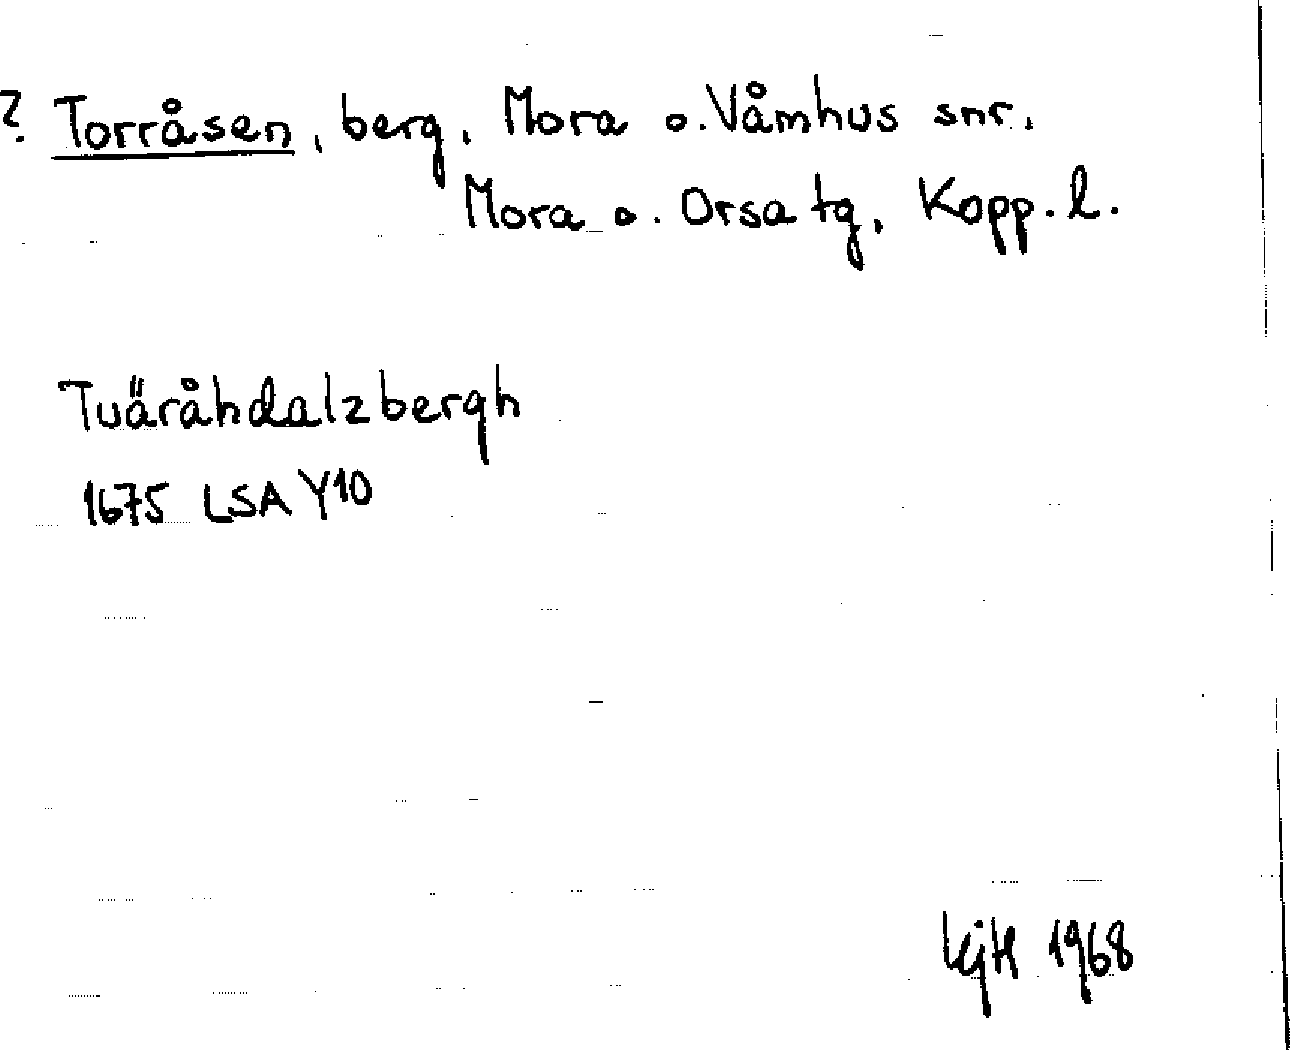 ? Torråsen, berg, Mora o. Våmhus snr,
Mora o. Orsa tg, Kopp. l.
Tuäråhdalzbergh
1675 LSA Y10
1968